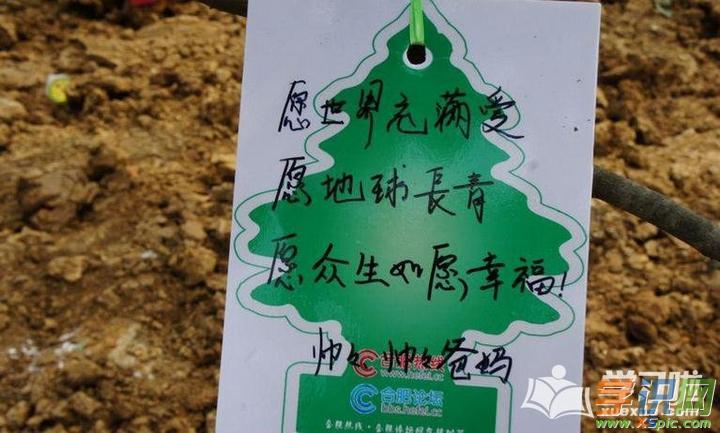 愿世界充满爱
愿地球長青
愿众生如愿幸福!
帅々帅々爸妈
合肥热线
www.hefei.cc
合肥论坛
bbs.hefei.cc
学习啦
xuexila.com
学识网
www.XSpic.com